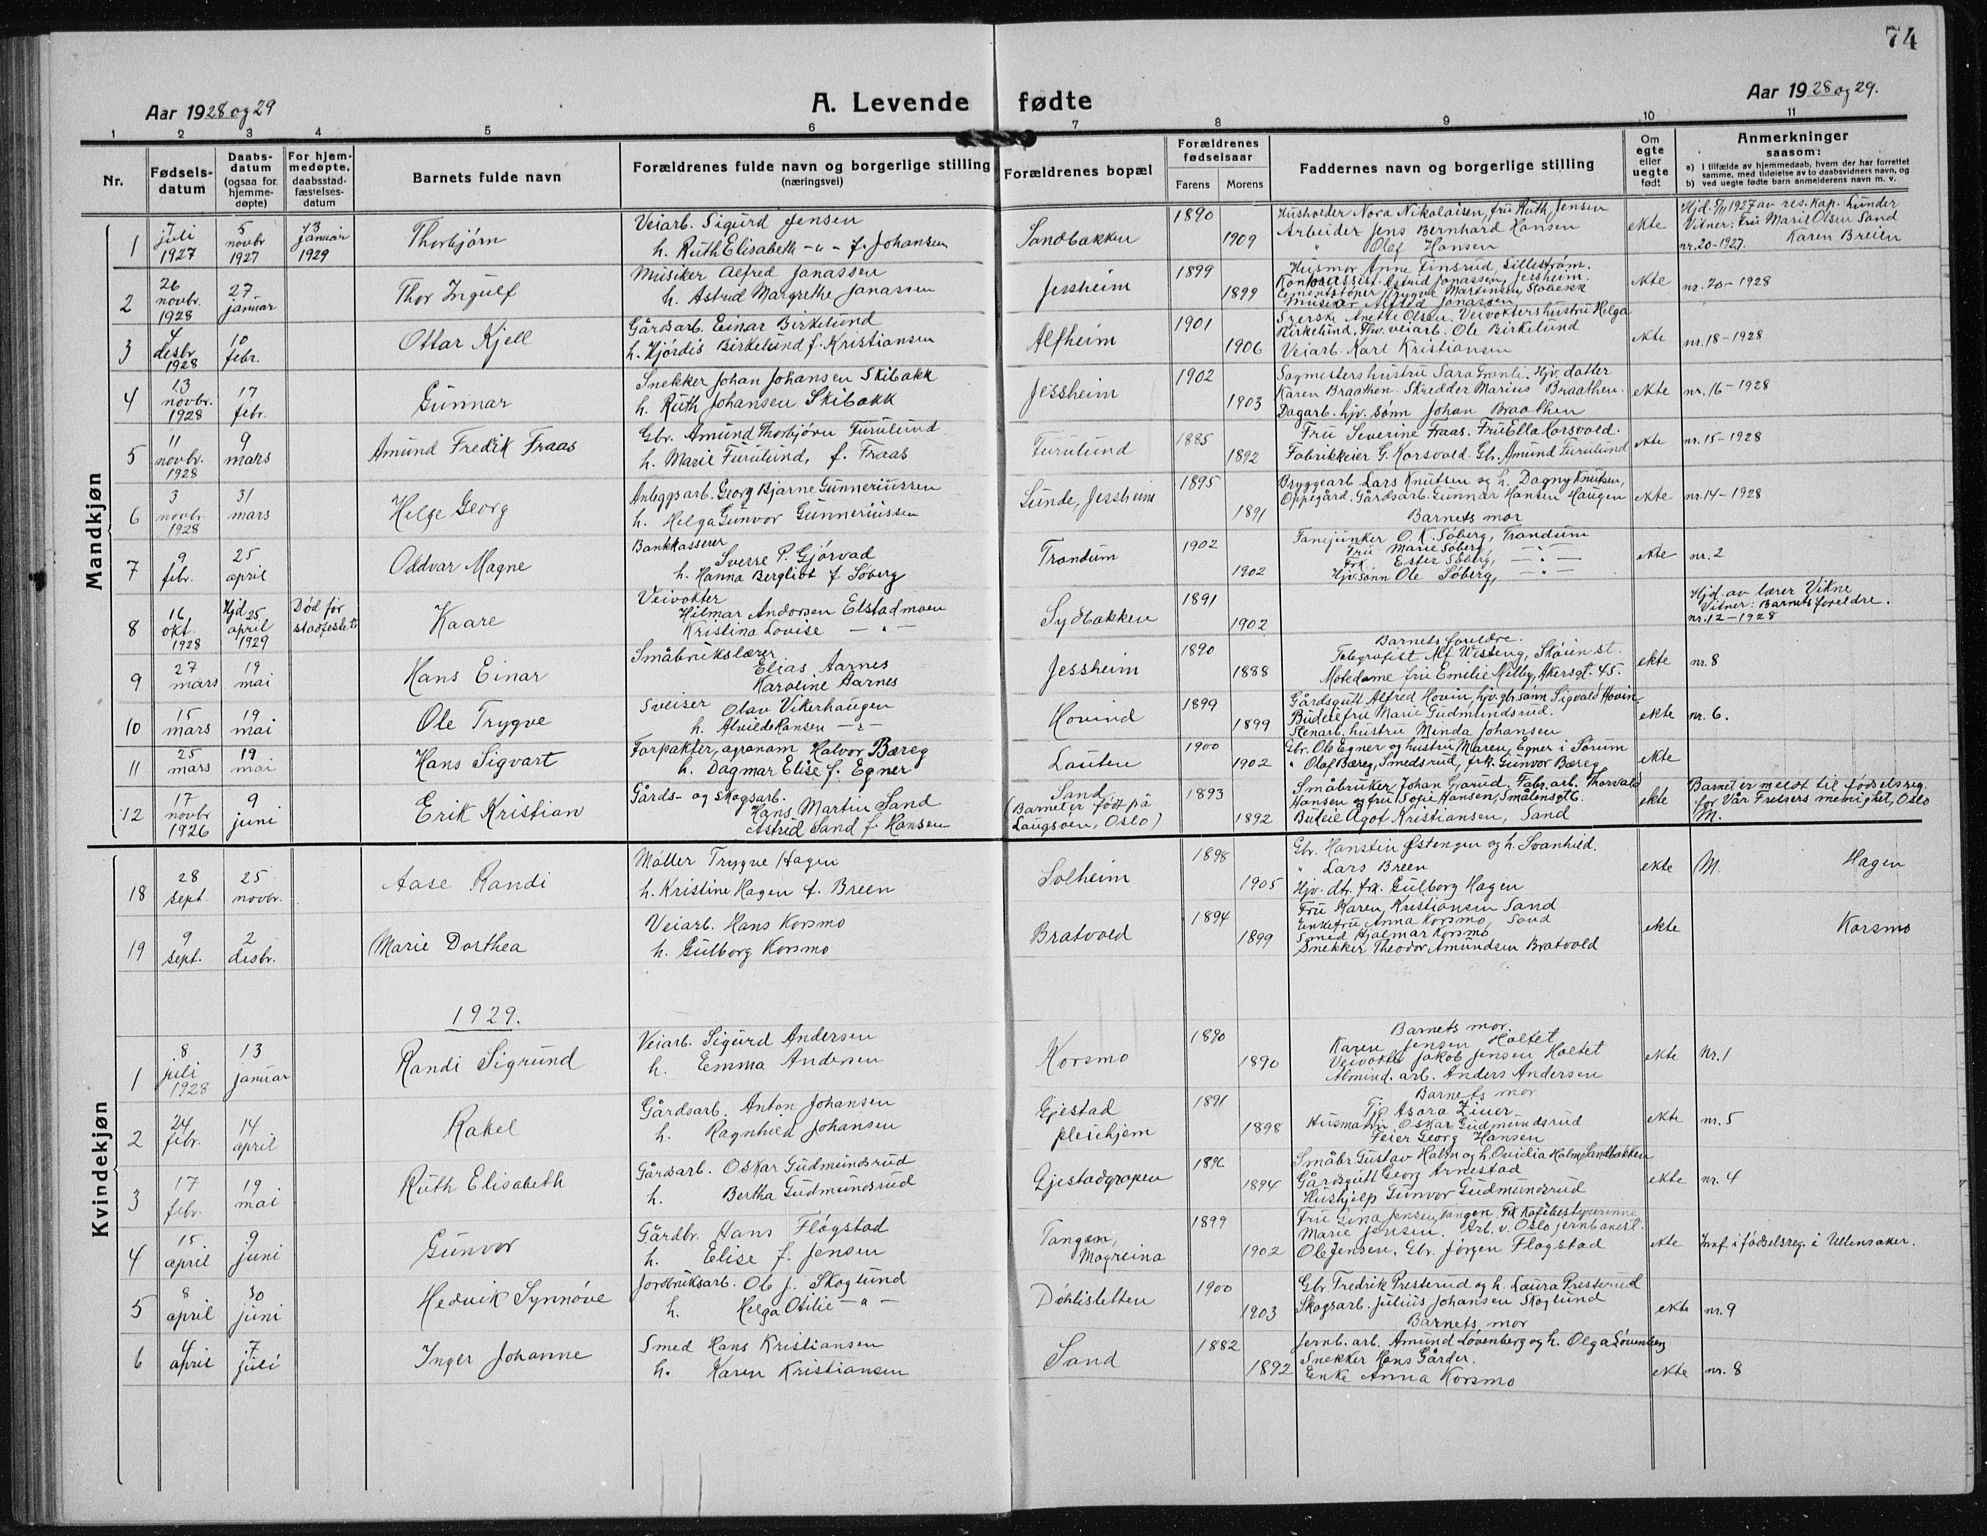 74
Aar 1928 og 29
A. Levende fødte
Aar 1928 og 29.
1 2 3 4 5 6 7 8 9 10 11
Nr.
Fødsels-
datum
Daabs-
datum
(ogsaa for
hjemme-
døpte)
For hjem-
medøpte,
daabsstad-
fæstelses-
datum
Barnets fulde navn
Forældrenes fulde navn og borgerlige stilling
(næringsvei)
Forældrenes bopæl
Forældrenes
fødselsaar
Farens Morens
Faddernes navn og borgerlige stilling
Om
egte
eller
uegte
født
Anmerkninger
saasom:
a) I tilfælde av hjemmedaab, hvem der har forrettet
samme, med tilføielse av to daabsvidners navn, og
b) ved uegte fødte barn anmelderens navn m. v.
Mandkjøn
1
7 juli 1927
5 novbr 1927
13 januar 1929
Thorbjørn
Veiarb. Sigurd Jensen
h. Ruth Elisabeth -"- f. Johansen
Sandbakken
1890
1909
Husholder Nora Nikolaisen, fru Ruth Jensen
Arbeider Jens Bernhard Hansen
" Olaf Hansen
ekte
Hjd. 5/11 1927 av res. kap. Lunder
Vitner: Fru Marie Olsen Sand
nr. 20-1927. Karen Breien
2
26 novbr. 1928
27 januar
Thor Ingulf
Musiker Alfred Janassen
h. Astrid Margrethe Janassen
Jessheim
1899
1899
Husmor Anne Finsrud, Lillestrøm.
Kontorassist. Astrid Jonassen, Jessheim.
Cementstøper Trygve Martinsen,
Musiker Alfred Jonassen
ekte
nr. 20-1928
3
4 desbr. 1928
10 febr.
Ottar Kjell
Gårdsarb. Einar Birkelund
h. Hjørdis Birkelund f. Kristiansen
Alfheim
1901
1906
Syerske Anette Olsen. Veivoktershustru Helga
Birkelund, Thv. veiarb. Ole Birkelund
Veiarb. Karl Kristiansen
ekte
nr. 18-1928
4
13 novbr. 1928
17 febr.
Gunnar
Snekker Johan Johansen Skibakk
h. Ruth Johansen Skibakk
Jessheim
1902
1903
Sagmestershustru Sara Granli. Hjv. datter
Karen Braathen. Skredder Marius Braathen.
Dagarb. hjv. sønn Johan Braathen
ekte
nr. 16-1928
5
11 novbr. 1928
9 mars
Amund Fredrik Fraas
Gbr. Amund Thorbjørn Furulund
h. Marie Furulund, f. Fraas
Furulund
1885
1892
Fru Severine Fraas. Fru Ella Korsvold.
Fabrikkeier G. Korsvold. Gbr. Amund Furulund
ekte
nr. 15-1928
6
3 novbr. 1928
31 mars
Helge Georg
Anleggsarb. Georg Bjarne Gunneriussen
h. Helga Gunvor Gunneriussen
Lunde, Jessheim
1895
1891
Bryggearb. Lars Knutsen og h. Dagny Knutsen,
Oppegård. Gårdsarb. Gunnar Hansen Haugen
Barnets mor
ekte
nr. 14-1928
7
9 febr.
25 april
Oddvar Magne
Bankkasserer
Sverre P. Gjørvad
h. Hanna Bergliot f. Søberg
Trandum
1902
1902
Fanejunker O. K. Søberg, Trandum
Fru Marie Søberg, -"-
Frk. Ester Søberg, -"-
Hjv. sønn Ole Søberg, -"-
ekte
nr. 2
8
16 okt. 1928
Hjd. 25 april 1929
Død før stadfestet
Kaare
Veivokter
Hilmar Andersen Elstadmoen
Kristina Lovise -"-
Sydbakken
1891
1902
Hjd. av lærer Vikne
Vitner: Barnets foreldre.
nr. 12-1928
9
27 mars
19 mai
Hans Einar
Småbrukslærer
Elias Aarnes
Karoline Aarnes
Jessheim
1890
1888
Barnets foreldre.
Telegrafist Alf Westeng, Støien st.
Motedame fru Emilie Milby, Akersgt. 45.
ekte
nr. 8
10
15 mars
19 mai
Ole Trygve
Sveiser Olav Vikerhaugen
h. Alvilde Hansen -"-
Hovind
1899
1899
Gårdsgutt Alfred Hovin, hjv. gbr. sønn Sigvald Hovin
Budeie fru Marie Gudmundsrud.
Stenarb. hustru Minda Johansen
ekte
nr. 6.
11
25 mars
19 mai
Hans Sigvart
Forpakter, agronom Halvor Bæreg
h. Dagmar Elise f. Egner
Lauten
1900
1902
Gbr. Ole Egner og hustru Maren Egner i Sørum
" Olaf Bæreg, Smedsrud, frk. Gunvor Bæreg
ekte
12
17 novbr 1926
9 juni
Erik Kristian
Gårds- og skogsarb.
Hans Martin Sand
Astrid Sand f. Hansen
Sand
(Barnet er født på
Langsøen, Oslo)
1893
1892
Småbruker Johan Grarud. Fabr. arb. Thorvald
Hansen og fru Sofie Hansen, Smålensgt.
Budeie Agot Kristiansen, Sand
ekte
Barnet er meldt til fødselsreg.
for Vår Frelsers menighet, Oslo
M.
Kvindekjøn
18
28 sept.
25 novbr.
Aase Randi
Møller Trygve Hagen
h. Kristine Hagen f. Breen
Solheim
1898
1905
Gbr. Hanstin Østengen og h. Svanhild.
" Lars Breen
Hjv. dtr. frk. Gulborg Hagen
ekte
M. Hagen
19
9 sept.
2 desbr.
Marie Dorthea
Veiarb. Hans Korsmo
h. Gulborg Korsmo
Bratvold
1894
1899
Fru Karen Kristiansen Sand
Enkefru Anna Korsmo Sand
Smed Hjalmar Korsmo
Snekker Theodor Amundsen Bratvold
ekte
Korsmo
1929.
1
8 juli 1928
13 januar
Randi Sigrund
Veiarb. Sigurd Andersen
h. Emma Andersen
Korsmo
1890
1890
Barnets mor.
Karen Jensen Holtet
Veivokter Jakob Jensen Holtet
Almind. arb. Anders Andersen
ekte
Nr. 1
2
24 febr.
14 april
Rakel
Gårdsarb. Anton Johansen
h. Ragnhild Johansen
Gjestad
pleiehjem
1891
1898
Barnets mor
Tjp Asora
Husmann Oskar Gudmundsrud
Feier Georg Hansen
ekte
nr. 5
3
17 febr.
19 mai
Ruth Elisabeth
Gårdsarb. Oskar Gudmundsrud
h. Bertha Gudmundsrud
Gjestadgropen
1896
1894
Småbr. Gustav Holm og h. Ovidia Holm, Sandbakken
Gårdsgutt Georg Arnestad
Hushjelp Gunvor Gudmundsrud
ekte
nr. 4
4
15 april
9 juni
Gunvor
Gårdbr. Hans Fløgstad
h. Elise f. Jensen
Tangen,
Mogreina
1899
1902
Fru Lina Jensen, Tangen. Frk. Kafébestyrerinne
Marie Jensen. Arb. v. Oslo jernbanest.
Ole Jensen. Gbr. Jørgen Fløgstad
ekte
Innf. i fødselsreg. i Ullensaker.
5
8 april
30 juni
Hedvik Synnøve
Jordbruksarb. Ole J. Skoglund
h. Helga Otilie -"-
Døhlisletten
1900
1903
Gbr. Fredrik Presterud og h. Laura Presterud
Skogsarb. Julius Johansen Skoglund
Barnets mor
ekte
nr. 9
6
4 april
7 juli
Inger Johanne
Smed Hans Kristiansen
h. Karen Kristiansen
Sand
1882
1892
Jernb. arb. Amund Løvenberg og h. Olga Løvenberg
Snekker Hans Gårder.
Enke Anna Korsmo
ekte
nr. 8